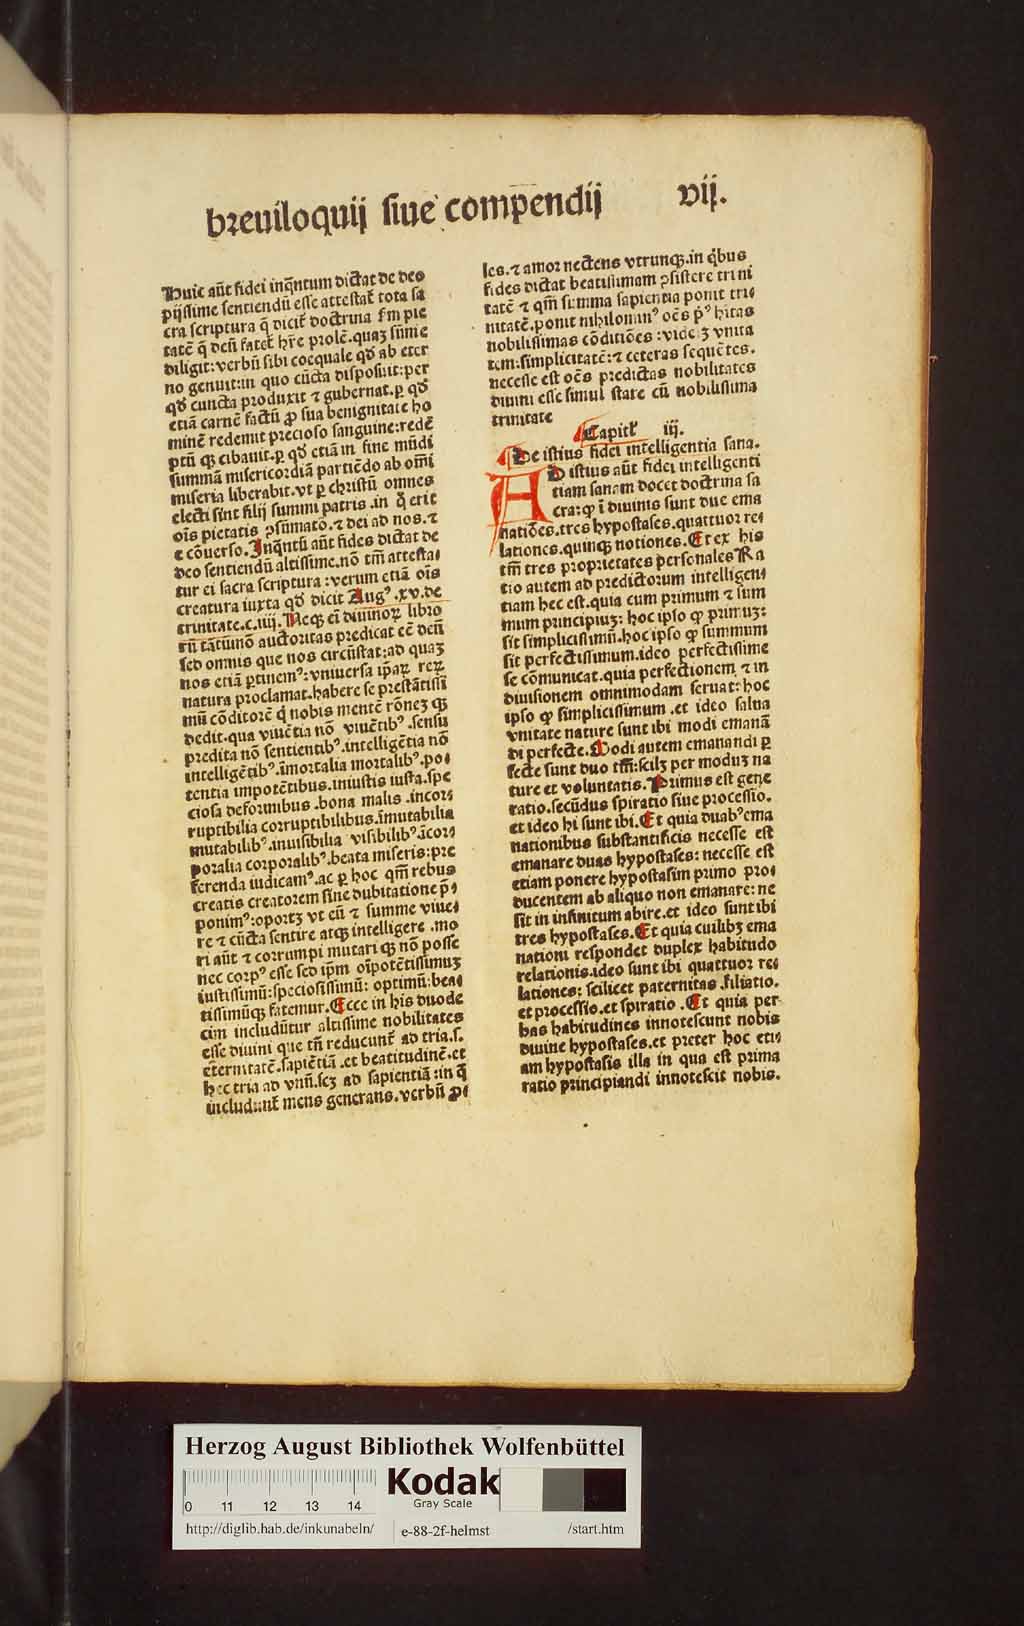 breuiloquij siue compendij vij.
Huic aūt fidei inq̄ntum dictat de deo
pijssime sentiendū esse attestat̄ tota sa
cra scriptura q̄ dicit̄ doctrina s̄m pie
tatē q̄ deū fatet̄ hr̄e prolē.quaꝫ sūme
diligit:verbū sibi coequale qd̄ ab eter
no genuit:in quo cūcta disposuit:per
qd̄ cuncta produxit ⁊ gubernat.ꝑ qd̄
etiā carnē factū ꝓ sua benignitate ho
minē redemit precioso sanguine:redē
ptū qꝫ cibauit.ꝑ qd̄ etiā in fine mūdi
summā misericordiā partiēdo ab om̄i
miseria liberabit.vt ꝑ christū omnes
electi sint filij summi patris.in q̄ erit
oīs pietatis ꝯsūmatō.⁊ dei ad nos.⁊
e cōuerso.Inq̄ntū aūt fides dictat de
deo sentiendū altissime.nō tm̄ attesta⸗
tur ei sacra scriptura:verum etiā oīs
creatura iuxta qd̄ dicit Augꝰ.xv.de
trinitate.c.iiij.Neqꝫ eī diuinoꝝ libro
rū tātūmō auctoritas predicat eē deū
sed omnis que nos circūstat:ad quaꝫ
nos etiā ꝑtinemꝰ:vniuersa ip̄aꝝ reꝝ
natura proclamat.habere se prestātissi
mū cōditorē q̄ nobis mentē rōneꝫ qꝫ
dedit.qua viuētia nō viuētibꝰ.sensu
predita nō sentientibꝰ.intelligētia nō
intelligētibꝰ.īmortalia mortalibꝰ.po⸗
tentia impotētibus.iniustis iusta.spe
ciosa deformibus.bona malis.incor⸗
ruptibilia corruptibilibus.īmutabilia
mutabilibꝰ.inuisibilia visibilibꝰ.īcor⸗
poralia corporalibꝰ.beata miseris:pre
ferenda iudicamꝰ.ac ꝑ hoc qm̄ rebus
creatis creatorem sine dubitatione p̄⸗
ponimꝰ:oportꝫ vt eū ⁊ summe viue⸗
re ⁊ cūcta sentire atqꝫ intelligere.mo
ri aūt ⁊ corrumpi mutari qꝫ nō posse
nec corpꝰ esse sed ip̄m oīpotētissimuꝫ
iustissimū:speciosissimū:optimū:bea⸗
tissimūqꝫ fatemur.Ecce in his duode
cim includūtur altissime nobilitates
esse diuini que tn̄ reducunt̄ ad tria.s.
eternitatē.sapiētiā.et beatitudinē.et
hec tria ad vnū.scꝫ ad sapientiā:in q̄
includunt̄ mens generans.verbū ꝓ⸗
les.⁊ amor nectens vtrunqꝫ.in qͥbus
fides dictat beatissimam ꝯsistere trini
tatē ⁊ qm̄ summa sapientia ponit tri⸗
nitatē.ponit nihilominꝰ oēs p̄habitas
nobilissimas cōditiōes:videꝫ vnita
tem:simplicitatē:⁊ ceteras sequētes.
necesse est oēs predictas nobilitates
diuini esse simul stare cū nobilissima
trinitate
Capitl̄ iij.
De istius fidei intelligentia sana.
AD istius aūt fidei intelligenti
tiam sanam docet doctrina sa
cra:ꝙ ī diuinis sunt due ema
natiōes.tres hypostases.quattuor re⸗
lationes.quinqꝫ notiones.Et ex his
tm̄ tres proprietates personales Ra
tio autem ad predictorum intelligen⸗
tiam hec est.quia cum primum ⁊ sum
mum principiuꝫ:hoc ipso ꝙ primuꝫ:
sit simplicissimū.hoc ipso ꝙ summum
sit perfectissimum.ideo perfectissime
se cōmunicat.quia perfectionem ⁊ in
diuisionem omnimodam seruat:hoc
ipso ꝙ simplicissimum.et ideo salua
vnitate nature sunt ibi modi emanā
di perfecte.Modi autem emanandi ꝑ
fecte sunt duo tm̄:scilꝫ per moduꝫ na
ture et voluntatis.Primus est gene
ratio.secūdus spiratio siue processio.
et ideo hi sunt ibi.Et quia duabꝰ ema
nationibus substantificis necesse est
emanare duas hypostases:necesse est
etiam ponere hypostasim primo pro⸗
ducentem ab aliquo non emanare:ne
sit in infinitum abire.et ideo sunt ibi
tres hypostases.Et quia cuilibꝫ ema
nationi respondet duplex habitudo
relationis.ideo sunt ibi quattuor re⸗
lationes:scilicet paternitas.filiatio.
et processio.et spiratio.Et quia per
has habitudines innotescunt nobis
diuine hypostases.et preter hoc eti⸗
am hypostasis illa in qua est prima
ratio principiandi innotescit nobis.
Herzog August Bibliothek Wolfenbüttel
0 11 12 13 14
Kodak
Gray Scale
http://diglib.hab.de/inkunabeln/ e-88-2f-helmst /start.htm